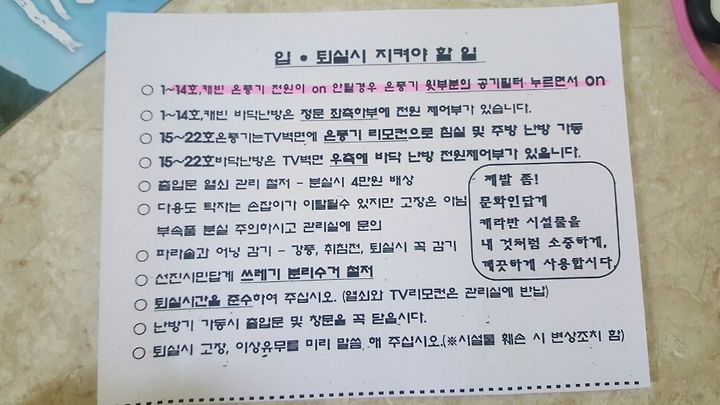 입 • 퇴실시 지켜야 할 일
○ 1~14호,캐빈 온풍기 전원이 on 안될경우 온풍기 윗부분의 공기필터 누르면서 on
○ 1~14호,캐빈 바닥난방은 정문 좌측하부에 전원 제어부가 있습니다.
○ 15~22호온풍기는TV벽면에 온풍기 리모컨으로 침실 및 주방 난방 가능
○ 15~22호바닥난방은 TV벽면 우측에 바닥 난방 전원제어부가 있읍니다.
○ 출입문 열쇠 관리 철저 - 분실시 4만원 배상
○ 다용도 탁자는 손잡이가 이탈될수 있지만 고장은 아님
부속품 분실 주의하시고 관리실에 문의
○ 파라솔과 어닝 감기 - 강풍, 취침전, 퇴실시 꼭 감기
○ 선진시민답게 쓰레기 분리수거 철저
○ 퇴실시간을 준수하여 주십시오. (열쇠와 TV리모컨은 관리실에 반납)
○ 난방기 가동시 출입문 및 창문을 꼭 닫읍시다.
○ 퇴실시 고장, 이상유무를 미리 말씀 해 주십시오.(※시설물 훼손 시 변상조치 함)
제발 좀!
문화인답게
캐라반 시설물을
내 것처럼 소중하게,
깨끗하게 사용합시다.